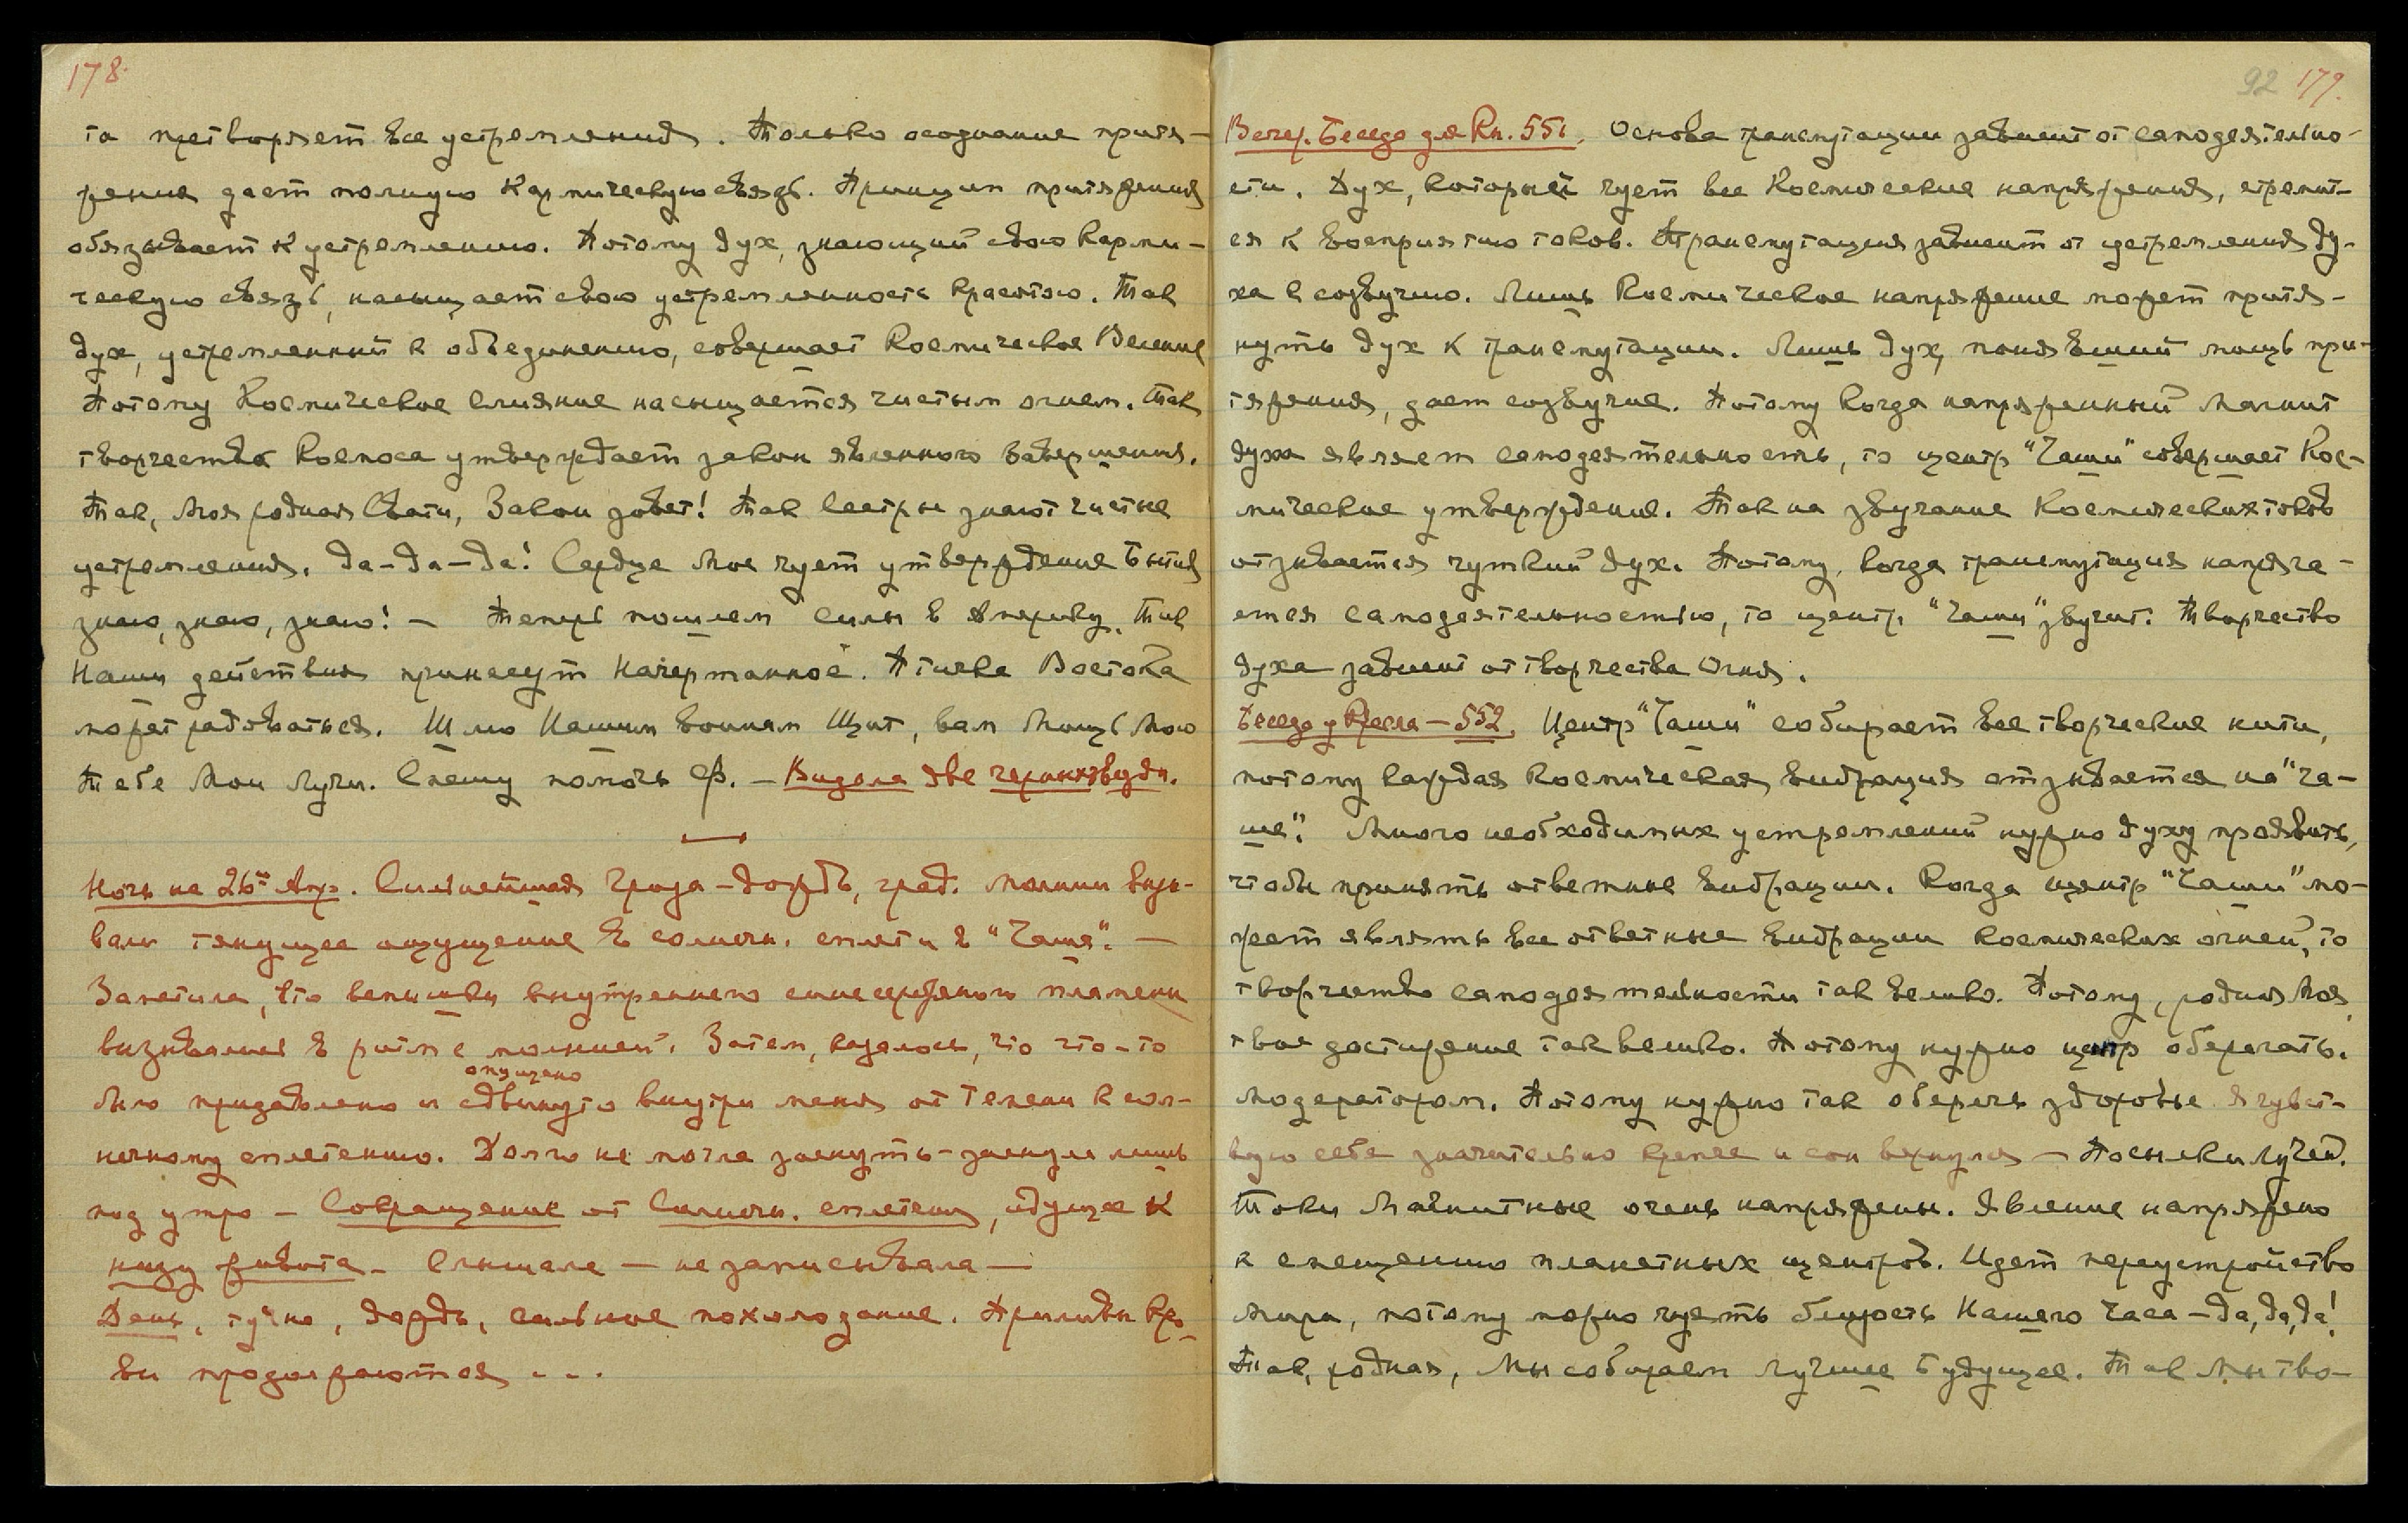 178.
та претворяет все устремления. Только осознание притя-
жения дает полную Кармическую связь. Принцип притяжения
обязывает к устремлению. Потому дух, знающий свою карми-
ческую связь, насыщает свою устремленность красотою. Так
дух, устремленный к объединению, совершает Космическое Веление
Потому Космическое слияние насыщается чистым огнем. Так
творчество Космоса утверждает закон явленного Завершения.
Так, Моя родная Свати, Закон зовет! Так Сестры знают чистые
устремления. Да-да-да! Сердце Мое чует утверждение Бытия
знаю, знаю, знаю! – Теперь пошлем силы в Америку. Так
Наши действия принесут Начертанное. Птичка Востока
может радоваться. Шлю Нашим воинам Щит, вам Мощь Мою
Тебе Мои Лучи. Спешу помочь Ф. – Видела две черных звезды.
Ночь на 26ое Апр. Сильнейшая гроза – дождь, град. Молнии вызы-
вали тянущее ощущение в солнечн. сплет и в "Чаше". –
Заметила, что вспышки внутреннего синесеребряного пламени
вызывались в ритме молний. Затем, казалось, что что-то
опущено
было придавлено и сдвинуто внутри меня от темени к сол-
нечному сплетению. Долго не могла заснуть – заснула лишь
под утро – Сокращение от Солнечн. сплетения, идущее к
низу живота – Слышала – не записывала –
День, тучно, дождь, сильное похолодание. Приливы кро-
ви продолжаются ...
92 179.
Вечер. Беседа для Кн. 551. Основа трансмутации зависит от самодеятельно-
сти. Дух, который чует все Космические напряжения, стремит-
ся к восприятию токов. Трансмутация зависит от устремления ду-
ха к созвучию. Лишь Космическое напряжение может притя-
нуть дух к трансмутации. Лишь дух, понявший мощь при-
тяжения, дает созвучие. Потому когда напряженный Магнит
духа являет самодеятельность, то центр "Чаши" совершает Кос-
мическое утверждение. Так на звучание Космических токов
отзывается чуткий дух. Потому, когда трансмутация напряга-
ется самодеятельностью, то центр "Чаши" звучит. Творчество
духа зависит от творчества Огня.
Беседа у Кресла – 552. Центр "Чаши" собирает все творческие нити,
потому каждая Космическая вибрация отзывается на "ча-
ше". Много необходимых устремлений нужно духу проявить,
чтобы принять ответные вибрации. Когда центр "Чаши" мо-
жет являть все ответные вибрации Космических огней, то
творчество самодеятельности так велико. Потому, родная Моя,
твое достижение так велико. Потому нужно центр оберегать.
Модератором. Потому нужно так оберечь здоровье. Я чувст-
вую себя значительно крепче и сон вернулся – Посылки лучей.
Токи Магнитные очень напряжены. Явление напряжено
к смещению планетных центров. Идет переустройство
Мира, потому можно чуять близость Нашего Часа – Да, да, да!
Так, родная, Мы собираем лучшее Будущее. Так Мы тво-